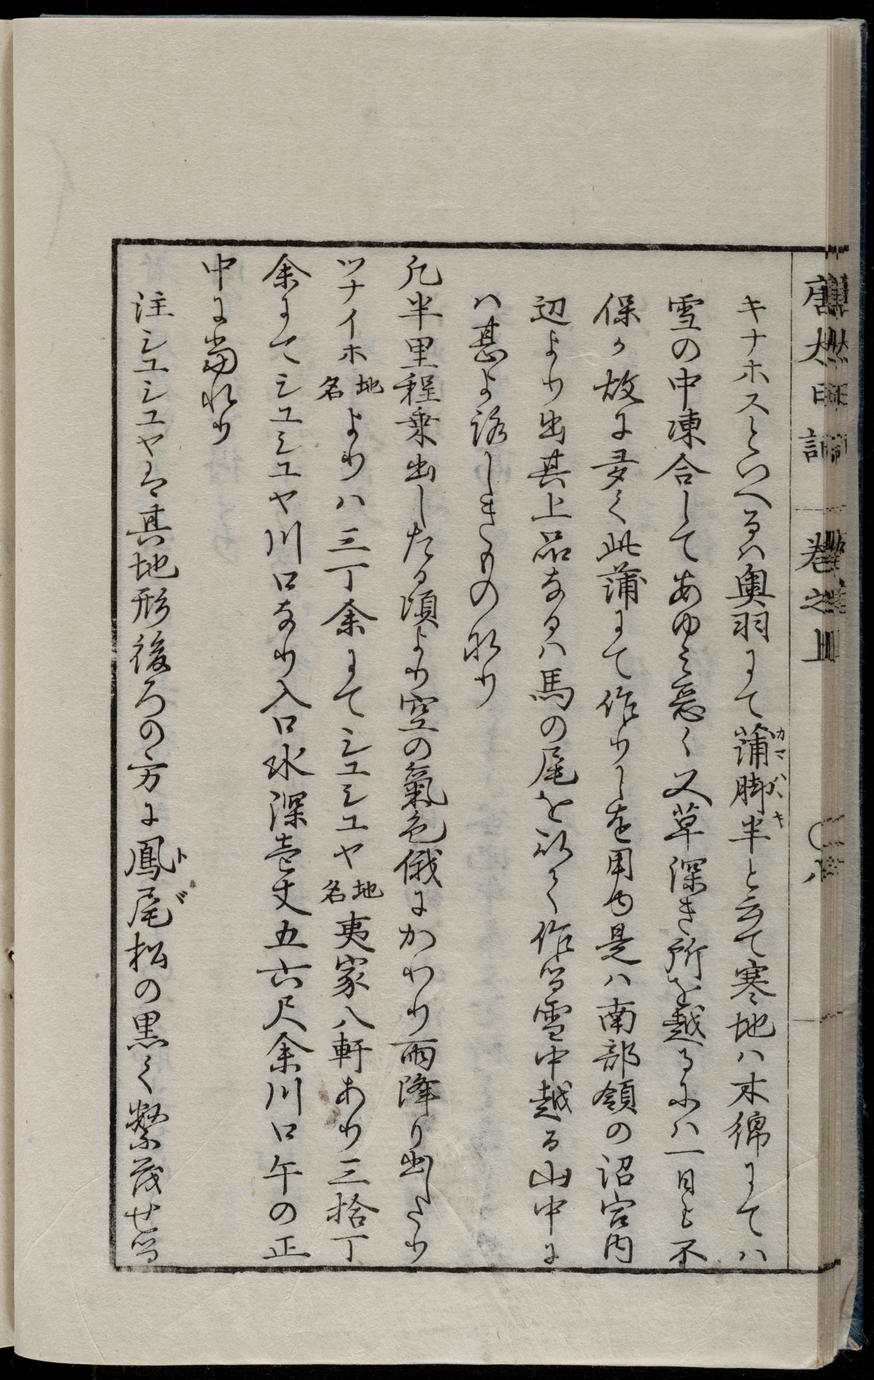 唐太日記 巻之上
キナホスといへるハ奥羽にて蒲脚半と云て寒地ハ木綿にてハ
カマハヽキ
雪の中凍合してあゆミ悪く又草深き所を越るにハ一日も不
保か故に多く此蒲にて作りしを用ゆ是ハ南部領の沼宮内
辺より出其上品なるハ馬の尾を以て作る雪中越る山中に
ハ甚よ路しきもの也り
凡半里程乗出したる頃より空の氣色俄にかわり雨降り出したり
ツナイホ地名よりハ三丁余にてシユシユヤ地名夷家八軒あり三拾丁
余にてシユシユヤ川口なり入口水深壱丈五六尺余川口午の正
中に當れり
注シユシユヤは其地形後ろの方に鳳尾松の黒く繁茂せる
トド